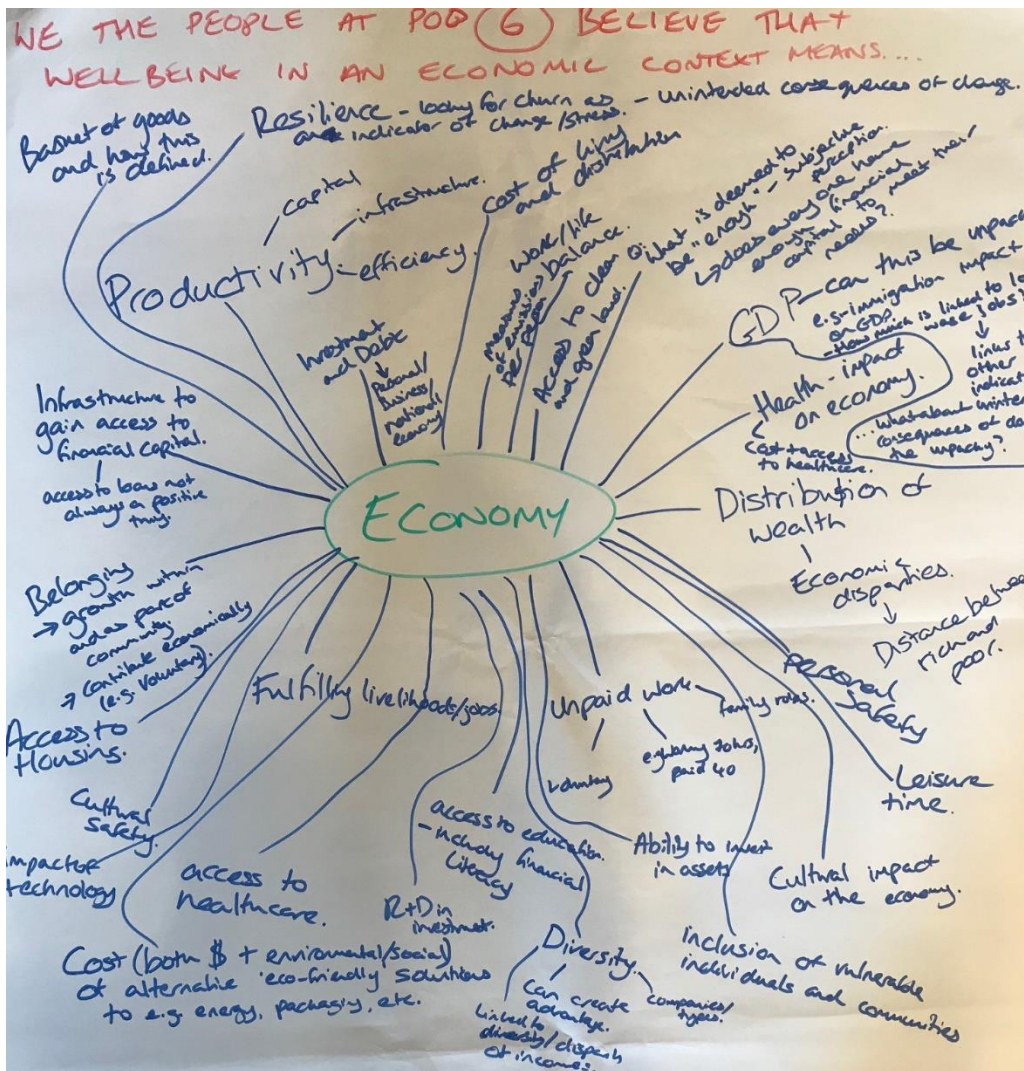 WE THE PEOPLE AT POD 6 BELIEVE THAT
WELLBEING IN AN ECONOMIC CONTEXT MEANS....
Basket of goods
and how this
is defined.
Resilience - looking for churn as - unintended consequences of change.
an indicator of change/stress.
Productivity
capital
infrastructure.
- efficiency.
Investment
and Debt
personal/
business/
national
economy
Cost of living
and distribution
Measures
of emissions
per person
Work/life
balance.
Access to clean
and green land.
What is deemed to
be "enough" - subjective
perception.
does every one have
enough financial
capital to meet their
needs?
GDP - can this be
e.g - immigration impact
on GDP.
- How much is linked to
wage jobs?
links
other
Health - impact
on economy.
Cost + access
to healthcare.
... what about
consequences of
the
Distribution of
wealth
Economic
disparities.
Distance between
rich and
poor.
Infrastructure to
gain access to
financial capital.
access to loans not
always a positive
thing.
Belonging
growth within
and as part of
community.
contribute economically
(e.g. voluntary).
Access to
Housing.
Cultural
safety.
impact of
technology
Fulfilling livelihoods/jobs.
access to
healthcare.
Cost (both $ + enviromental/social)
of alternative 'eco-friendly solutions
to e.g. energy, packaging, etc.
R+D in
investment.
access to education.
- including financial
Literacy
Unpaid work
family roles.
voluntary
working 70hrs,
paid 40
Ability to invest
in assets
Diversity.
can create
advantage.
companies/
types.
Linked to
diversity/
of incomes.
Personal
Safety
Leisure
time.
Cultural impact
on the economy.
Inclusion of vulnerable
individuals and communities